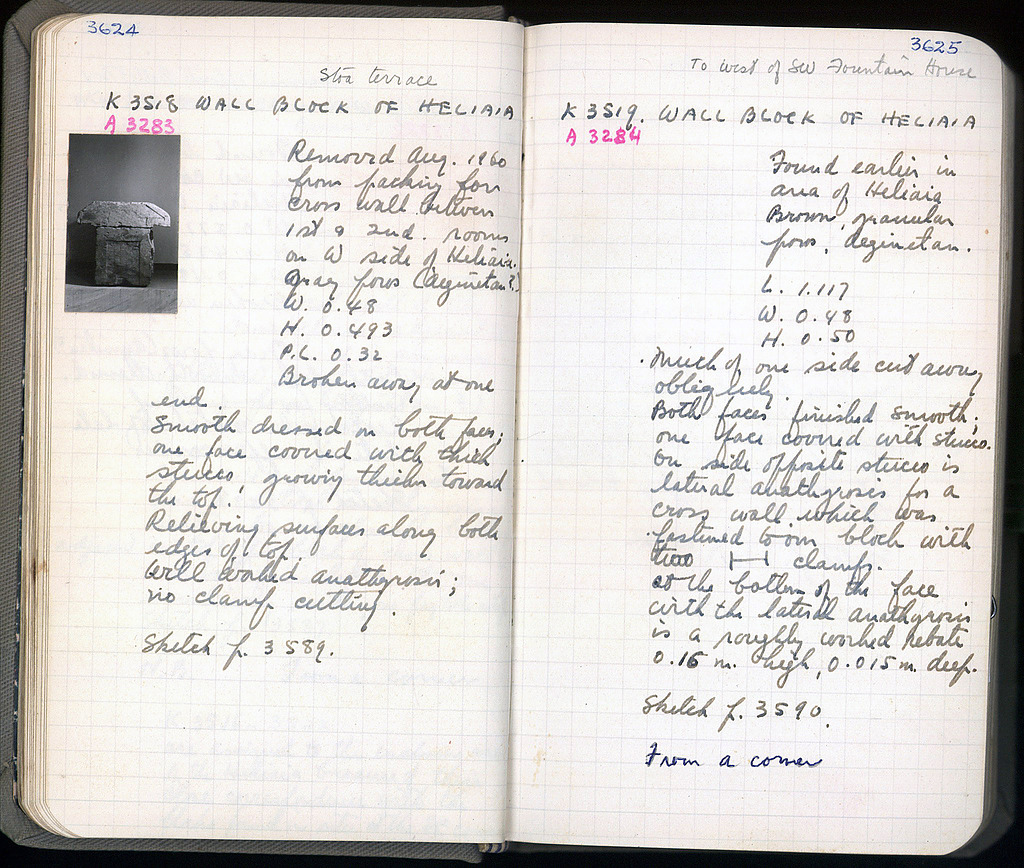 3624
Stoa terrace
K 3518 WALL BLOCK OF HELIAIA
A 3283
Removed Aug. 1960
from packing for
cross wall between
1st & 2nd. rooms
on W side of Heliaia.
Gray poros (Aeginetan?)
W. 0.48
H. 0.493
P.L. 0.32
Broken away at one
end.
Smooth dressed on both faces;
one face covered with thick
stucco, growing thicker toward
the top.
Relieving surfaces along both
edges of top.
Well worked anathyrosis;
no clamp cutting.
Sketch p. 3589.
3625
To West of SW Fountain House
K 3519. WALL BLOCK OF HELIAIA
A 3284
Found earlier in
area of Heliaia
Brown, granular
poros, Aeginetan.
L. 1.117
W. 0.48
H. 0.50
Much of one side cut away
obliquely.
Both faces finished smooth;
one face covered with stucco.
On side opposite stucco is
lateral anathyrosis for a
cross wall which was
fastened to our block with
two clamps.
At the bottom of the face
with the lateral anathyrosis
is a roughly worked rebate
0.16 m. high, 0.015 m. deep.
Sketch p. 3590.
From a corner